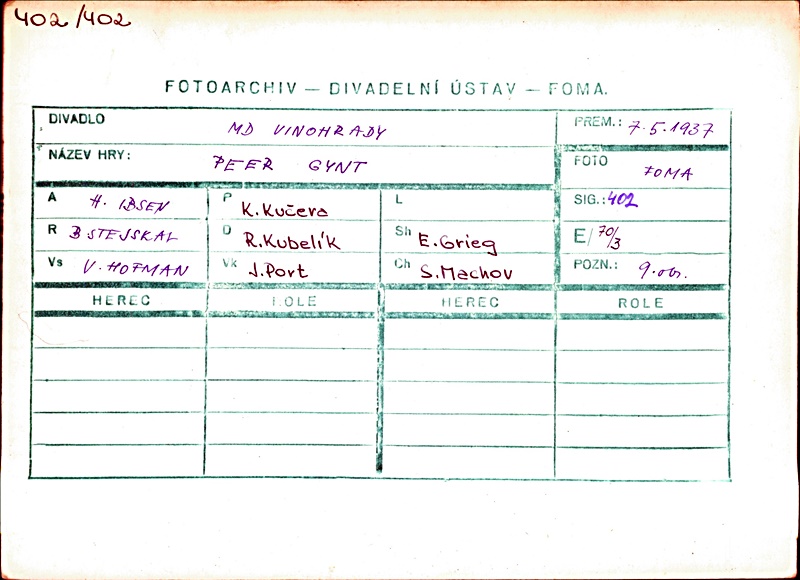 402/402
FOTOARCHIV — DIVADELNÍ ÚSTAV — FOMA.
DIVADLO MD VINOHRADY PREM.: 7.5.1937
NÁZEV HRY: PEER GYNT FOTO FOMA
A H. IBSEN P K.Kučera L SIG.: 402
R B STEJSKAL D R.Kubelík Sh E.Grieg E/ 70/3
Vs V. HOFMAN Vk J.Port Ch S.Machov POZN.: 9.ob.
HEREC ROLE HEREC ROLE